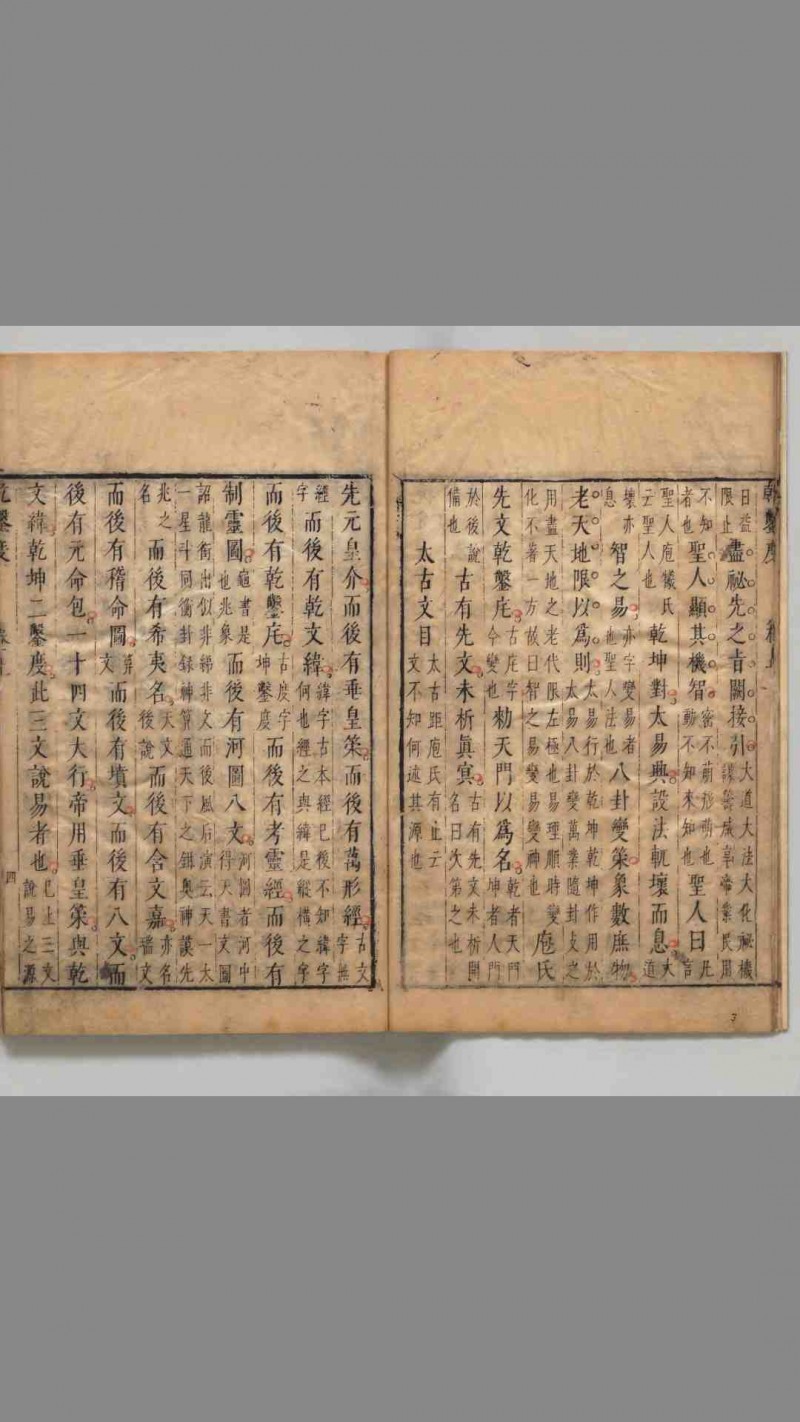 乾鑿度　卷上
日益限止盡祕先之旨闢接引大道大法大化祕機謀籌成享帝業民用
不知者也聖人顯其機智密不萌形萌也動不知來知也聖人曰此言
聖人庖犧氏云聖人也乾坤對太易典設法軌壞而息大道
壞亦息智之易亦字變易者也聖人法也八卦變策象數庶物
老天地限以爲則太易行於乾坤乾坤作用於太易八卦變萬業隨卦爻之
用盡天地之老代限左極也易理順時變化不著一方故曰智之易變易變神也庖氏
先文乾鑿庑古庑字今變也勑天門以爲名乾者天門坤者人門
於後說備也古有先文未析眞冥古有先文未析開名曰次第之也
太古文目太古距庖氏有止云文不知何述其源也
3
先元皇介而後有垂皇策而後有萬形經古文字無
經字而後有乾文緯緯字古本經已後不知緯字何也經之與緯是縱橫之字
而後有乾鑿庑古度字坤鑿度而後有考靈經而後有
制靈圖龜書是也兆象而後有河圖八文河圖者河中得天書文圖
詔龍銜出似非綈非文而後風后演云天一太一星斗同衞卦錄神算通天下之錯奧神謨先
兆之名而後有希夷名大文後說而後有含文嘉亦名墻文
而後有稽命圖算文而後有墳文而後有八文而
後有元命包一十四文大行帝用垂皇策與乾
文緯乾坤二鑿度此三文說易者也已上三文說易之源
四